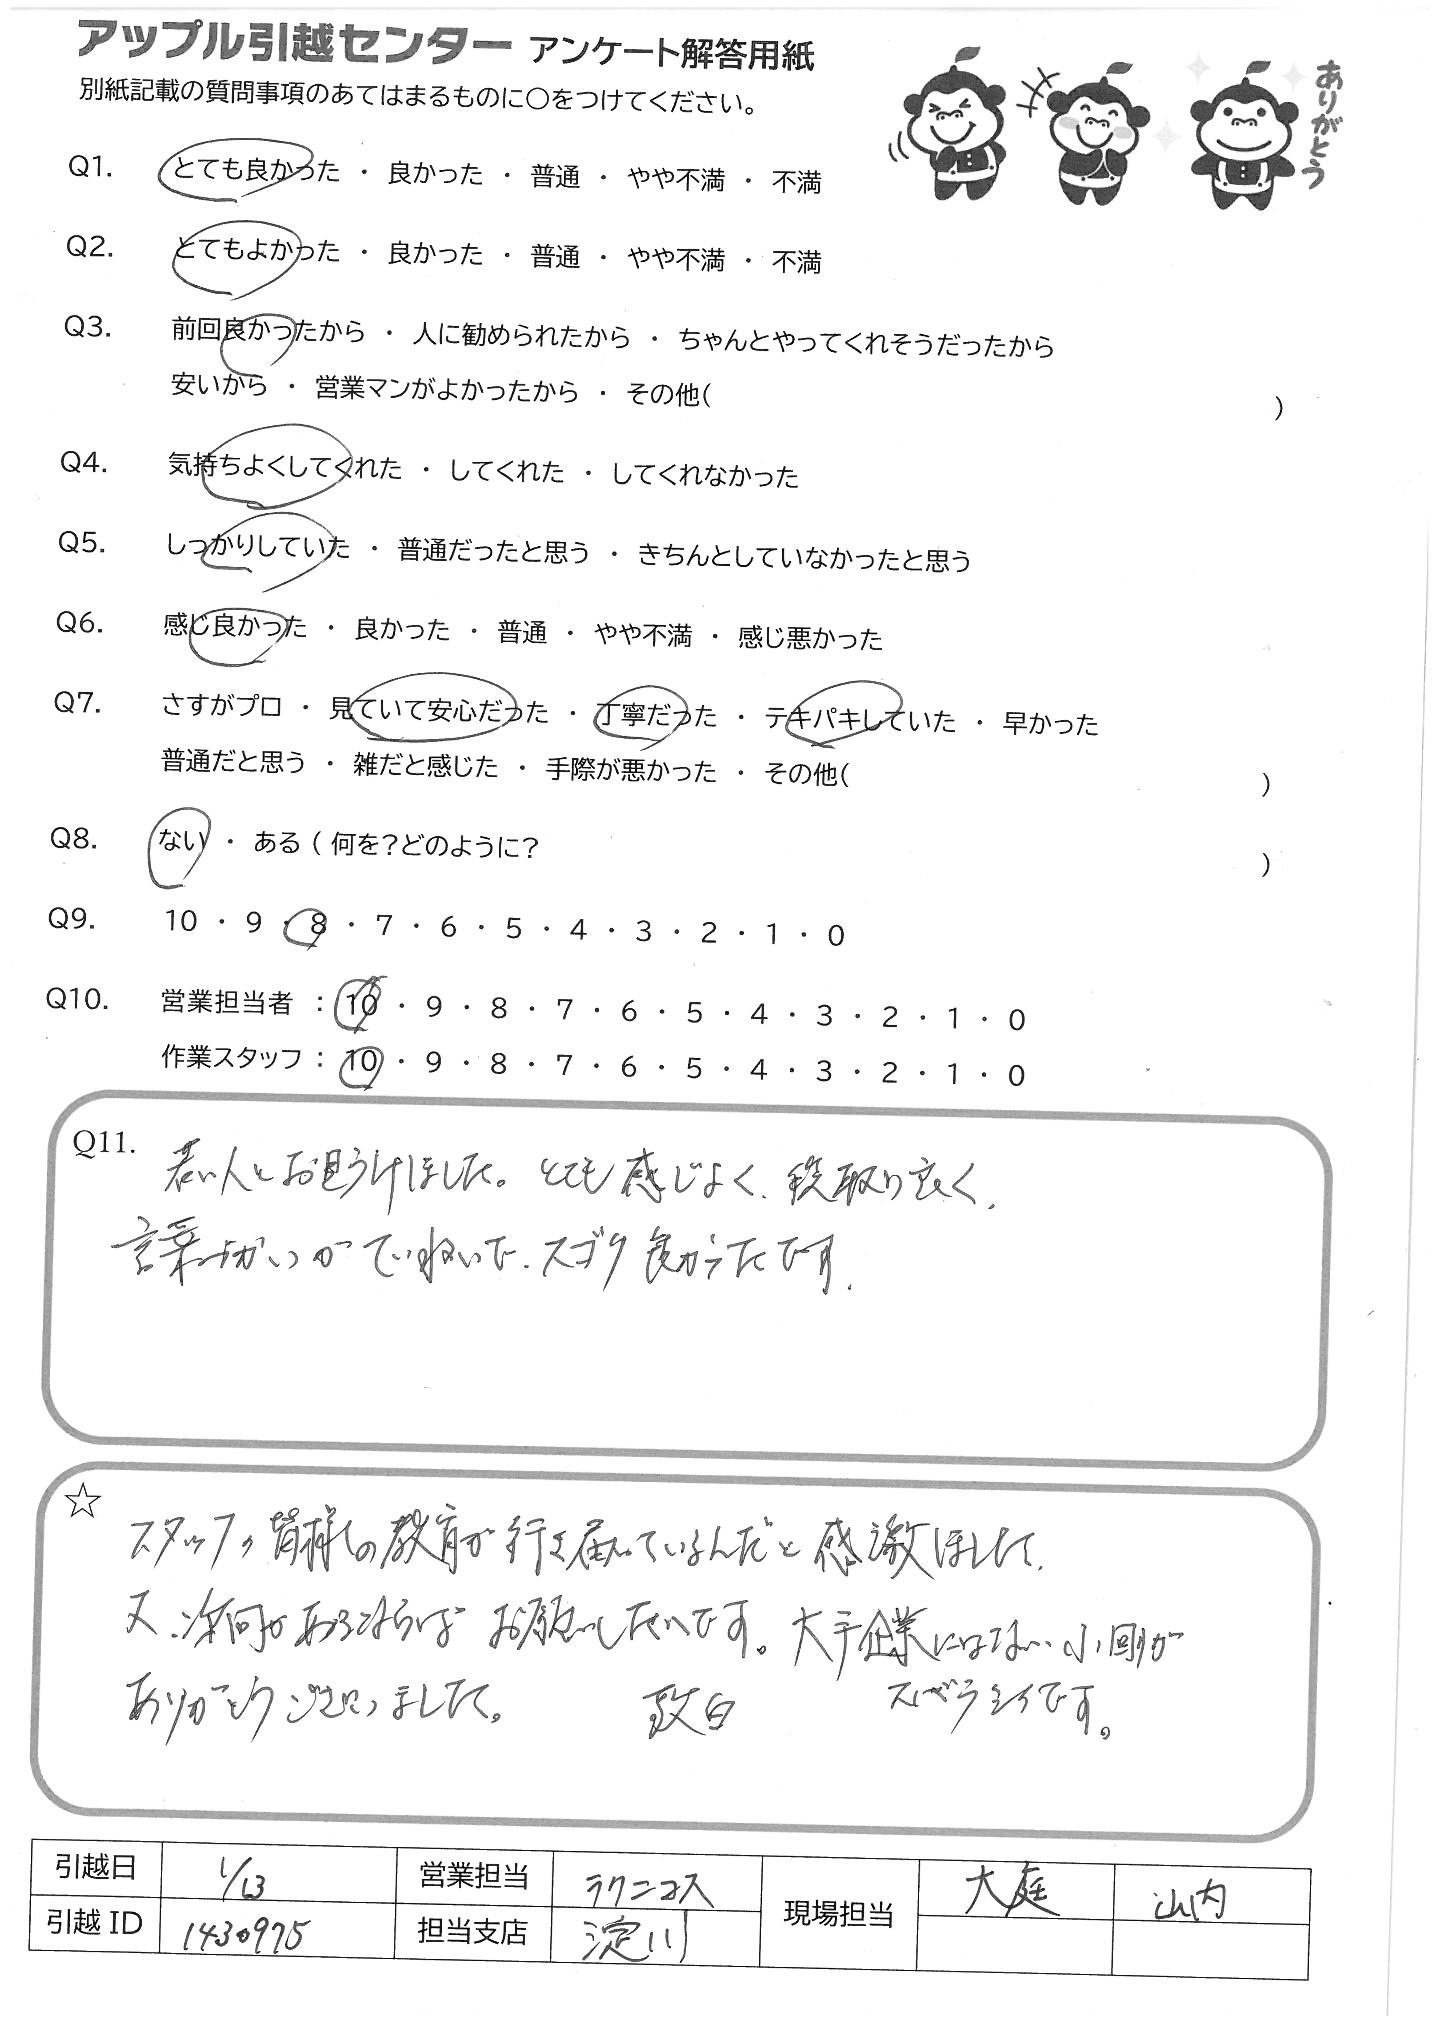 アップル引越センター アンケート解答用紙
別紙記載の質問事項のあてはまるものに○をつけてください。
ありがとう
Q1. とても良かった ・ 良かった ・ 普通 ・ やや不満 ・ 不満
Q2. とてもよかった ・ 良かった ・ 普通 ・ やや不満 ・ 不満
Q3. 前回良かったから ・ 人に勧められたから ・ ちゃんとやってくれそうだったから
安いから ・ 営業マンがよかったから ・ その他( )
Q4. 気持ちよくしてくれた ・ してくれた ・ してくれなかった
Q5. しっかりしていた ・ 普通だったと思う ・ きちんとしていなかったと思う
Q6. 感じ良かった ・ 良かった ・ 普通 ・ やや不満 ・ 感じ悪かった
Q7. さすがプロ ・ 見ていて安心だった ・ 丁寧だった ・ テキパキしていた ・ 早かった
普通だと思う ・ 雑だと感じた ・ 手際が悪かった ・ その他( )
Q8. ない ・ ある ( 何を？どのように？ )
Q9. 10 ・ 9 ・ 8 ・ 7 ・ 6 ・ 5 ・ 4 ・ 3 ・ 2 ・ 1 ・ 0
Q10. 営業担当者 : 10 ・ 9 ・ 8 ・ 7 ・ 6 ・ 5 ・ 4 ・ 3 ・ 2 ・ 1 ・ 0
作業スタッフ : 10 ・ 9 ・ 8 ・ 7 ・ 6 ・ 5 ・ 4 ・ 3 ・ 2 ・ 1 ・ 0
Q11. 若い人とお見うけしました。とても感じよく、段取り良く、
言葉づかいがていねいで、スゴク良かったです。
☆ スタッフの皆様の教育が行き届いているんだと感激しました。
又、次回があるならばお願いしたいです。大手企業にはない小回りが
ありがとうございました。 敬白 スバラシイです。
引越日 1/13 営業担当 ラクニコス 現場担当 大庭 山内
引越ID 1430975 担当支店 淀川